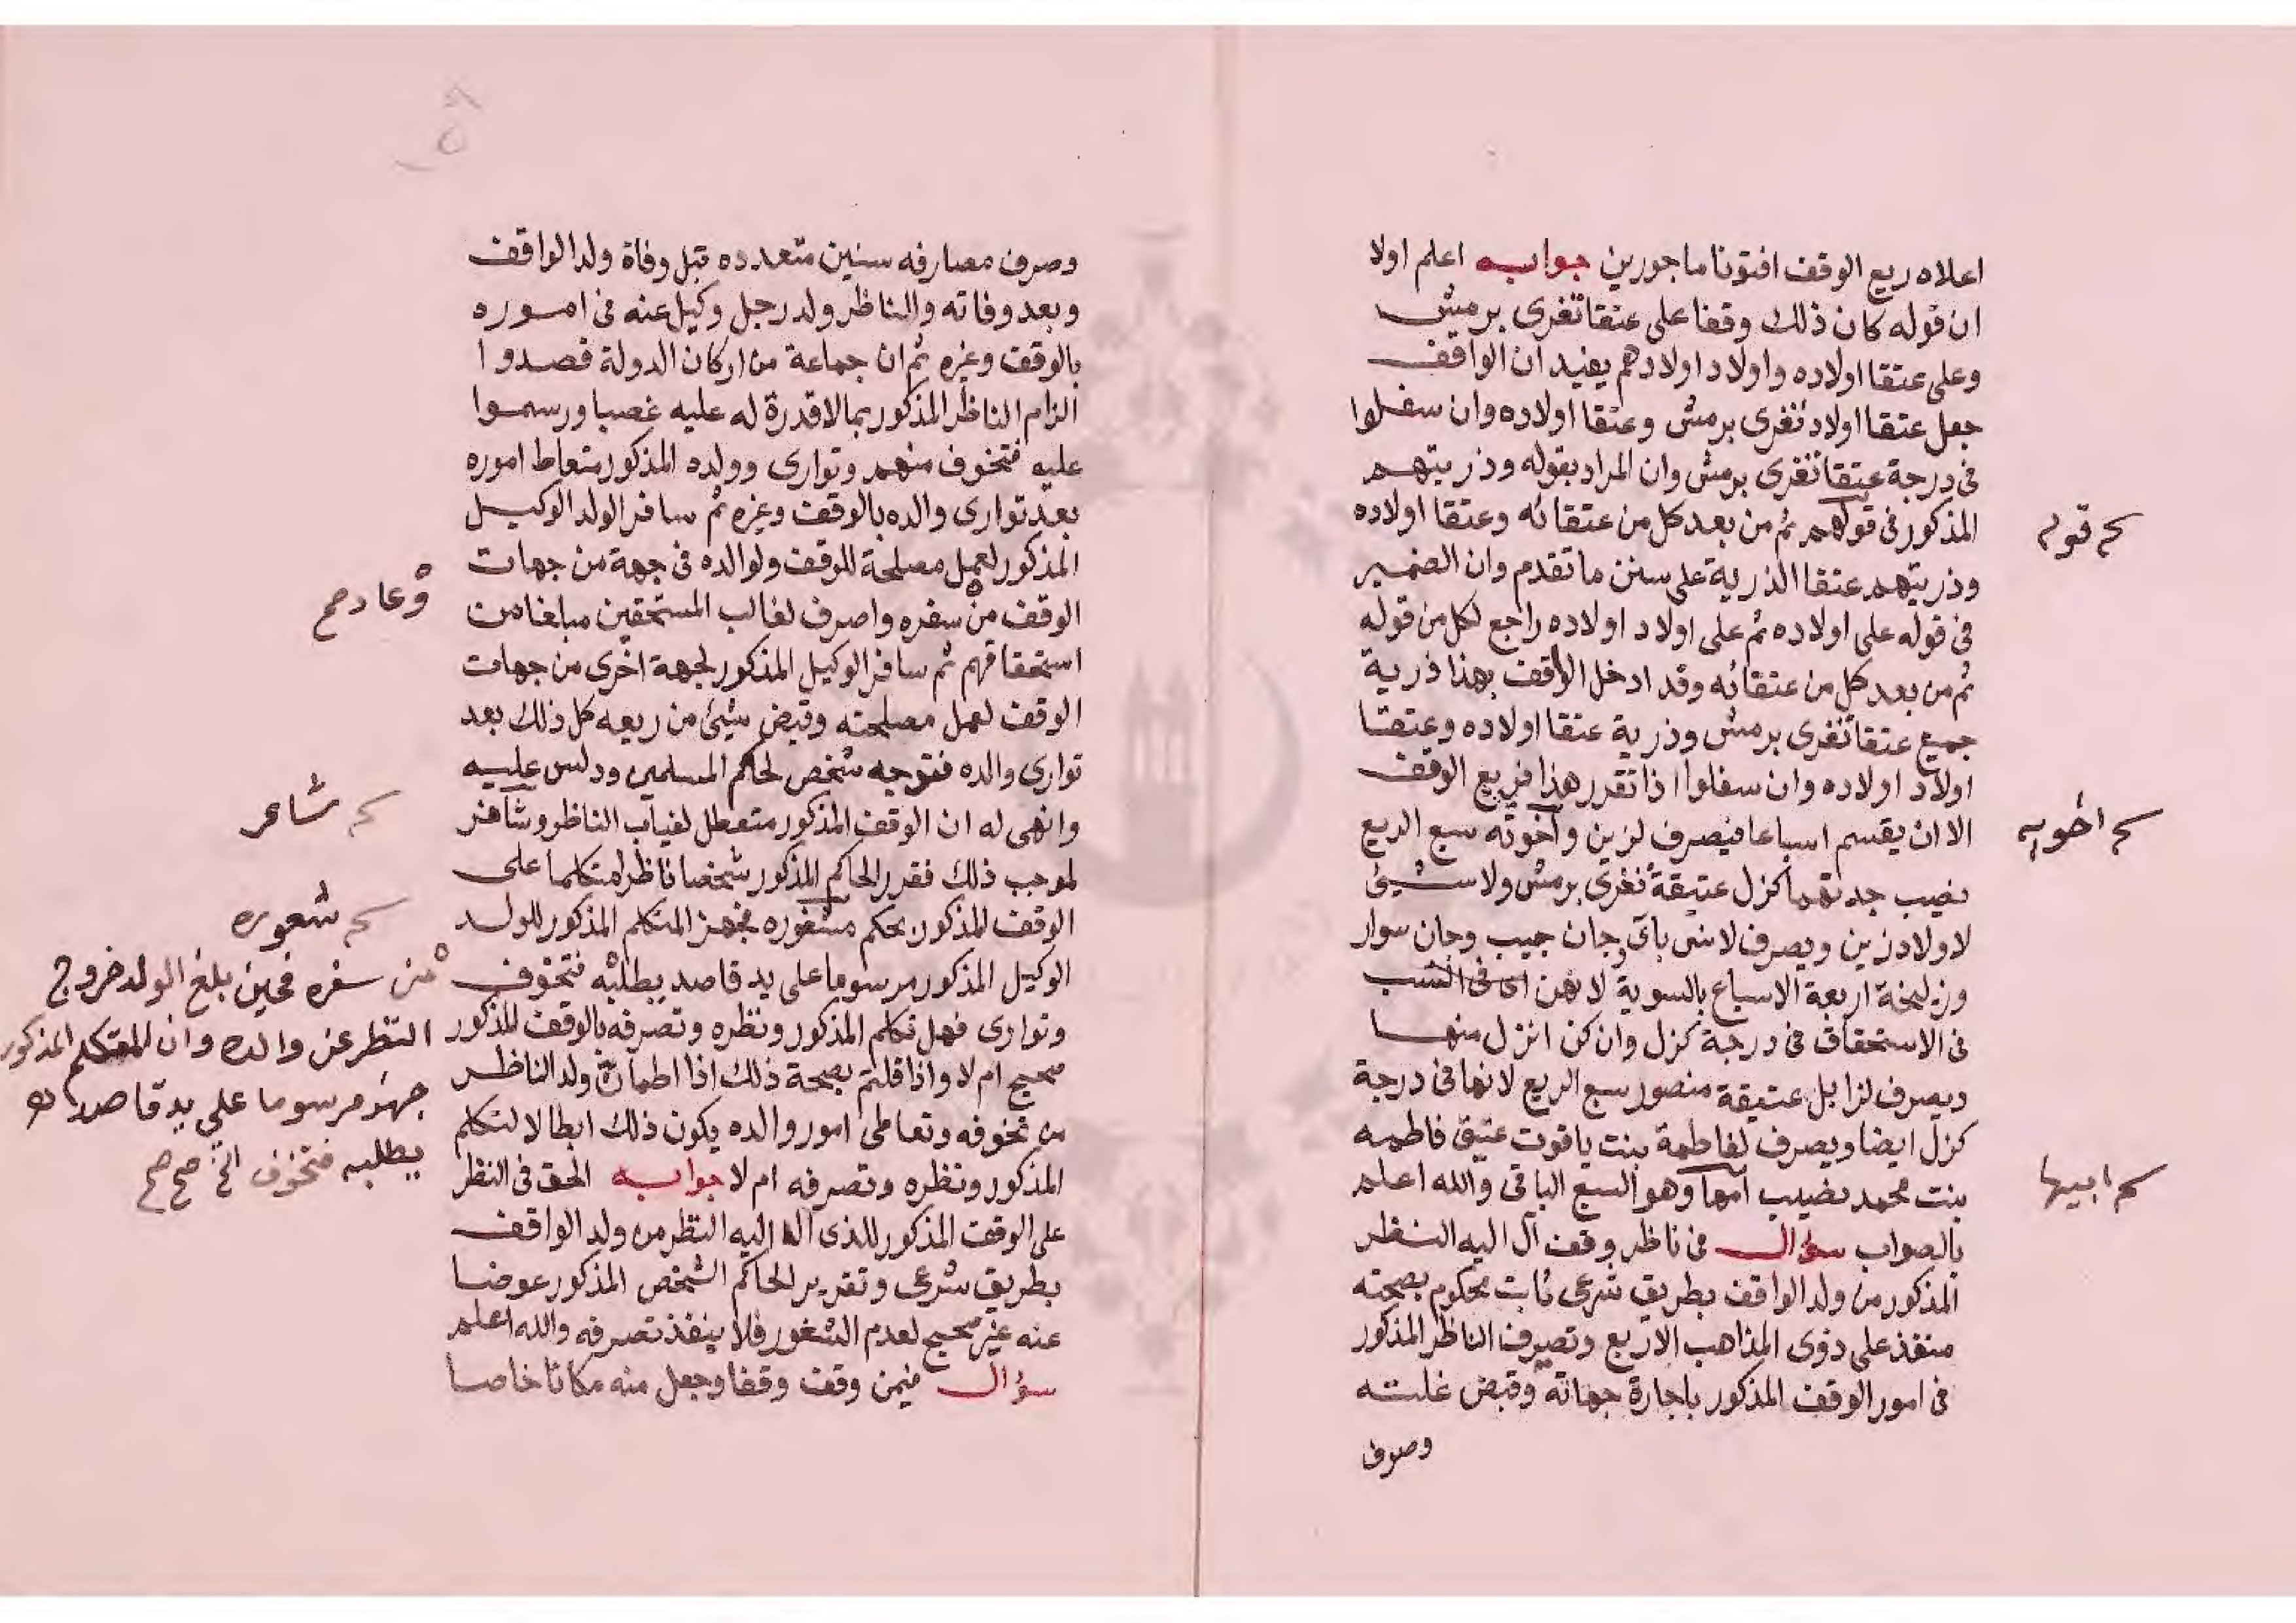 اعلاه ريع الوقف افتونا ماجورين جوابه اعلم اولا
ان قوله كان ذلك وقفا على عتقا تغرى برمش
وعلى عتقا اولاده واولاد اولادهم يفيد ان الواقف
جعل عتقا اولاد تغرى برمش وعتقا اولاده وان سفلوا
فى درجة عتقا تغرى برمش وان المراد بقوله وذريتهم
المذكور فى قولهم ثم من بعد كل من عتقائه وعتقا اولاده
وذريتهم عتقا الذرية على سنن ما تقدم وان الضمير
فى قوله على اولاده ثم على اولاد اولاده راجع لكل من قوله
ثم من بعد كل من عتقائه وقد ادخل الواقف بهذا ذرية
جميع عتقا تغرى برمش وذرية عتقا اولاده وعتقا
اولاد اولاده وان سفلوا اذا تقرر هذا فريع الوقف
الا ان يقسم اسباعا فيصرف لزين واخوته سبع الريع
نصيب جدتهما كزل عتيقة تغرى برمش ولا شيئ
لاولاد زين ويصرف لانس باى وجان جيب وجان سوار
وزليخة اربعة الاسباع بالسوية لانهن فى النسب
فى الاستحقاق فى درجة كزل وان كن انزل منها
ويصرف لزابل عتيقة منصور سبع الريع لانها فى درجة
كزل ايضا ويصرف لفاطمة بنت ياقوت عتيق فاطمه
بنت محمد نصيب امها وهو السبع الباقى والله اعلم
بالصواب سؤال فى ناظر وقف آل اليه النظر
المذكور من ولد الواقف بطريق شرعى ثابت محكوم بصحته
منفذ على ذوى المذاهب الاربع وتصرف الناظر المذكور
فى امور الوقف المذكور باجارة جهاته وقبض غلته
وصرف
قوله
اخويه
ابيها
وصرف مصارفه سنين متعدده قبل وفاة ولد الواقف
وبعد وفاته والناظر ولد رجل وكيل عنه فى اموره
بالوقف وغيره ثم ان جماعة من اركان الدولة قصدوا
الزام الناظر المذكور بما لا قدرة له عليه غصبا ورسموا
عليه فتخوف منهم وتوارى وولده المذكور متعاط اموره
بعد توارى والده بالوقف وغيره ثم سافر الولد الوكيل
المذكور لعمل مصلحة للوقف ولوالده فى جهة من جهات
الوقف من سفره واصرف لغالب المستحقين مبلغا من
استحقاقهم ثم سافر الوكيل المذكور لجهة اخرى من جهات
الوقف لعمل مصلحته وقبض شيئ من ريعه كل ذلك بعد
توارى والده فتوجه شخص لحاكم المسلمين ودلس عليه
وانهى له ان الوقف المذكور متعطل لغياب الناظر وشاغر
لموجب ذلك فقرر الحاكم المذكور شخصا ناظرا متكلما على
الوقف المذكور بحكم شغوره فجهز المتكلم المذكور للولد
الوكيل المذكور مرسوما على يد قاصد يطلبه فتخوف
وتوارى فهل تكلم المذكور ونظره وتصرفه بالوقف المذكور
صحيح ام لا واذا قلتم بصحة ذلك اذا اطمان ولد الناظر
من تخوفه وتعاطى امور والده يكون ذلك ابطالا لتكلم
المذكور ونظره وتصرفه ام لا جوابه الحق فى النظر
على الوقف المذكور للذى آل اليه النظر من ولد الواقف
بطريق شرعى وتقرير الحاكم الشخص المذكور عوضا
عنه غير صحيح لعدم الشغور فلا ينفذ تصرفه والله اعلم
سؤال فيمن وقف وقفا وجعل منه مكانا خاصا
وعاد صح
شاغر
شغوره
من سفره فحين بلغ الولد خروج
النظر عن والده وان المتكلم المذكور
جهز مرسوما على يد قاصد له
يطلبه فتخوف الخ صح صح